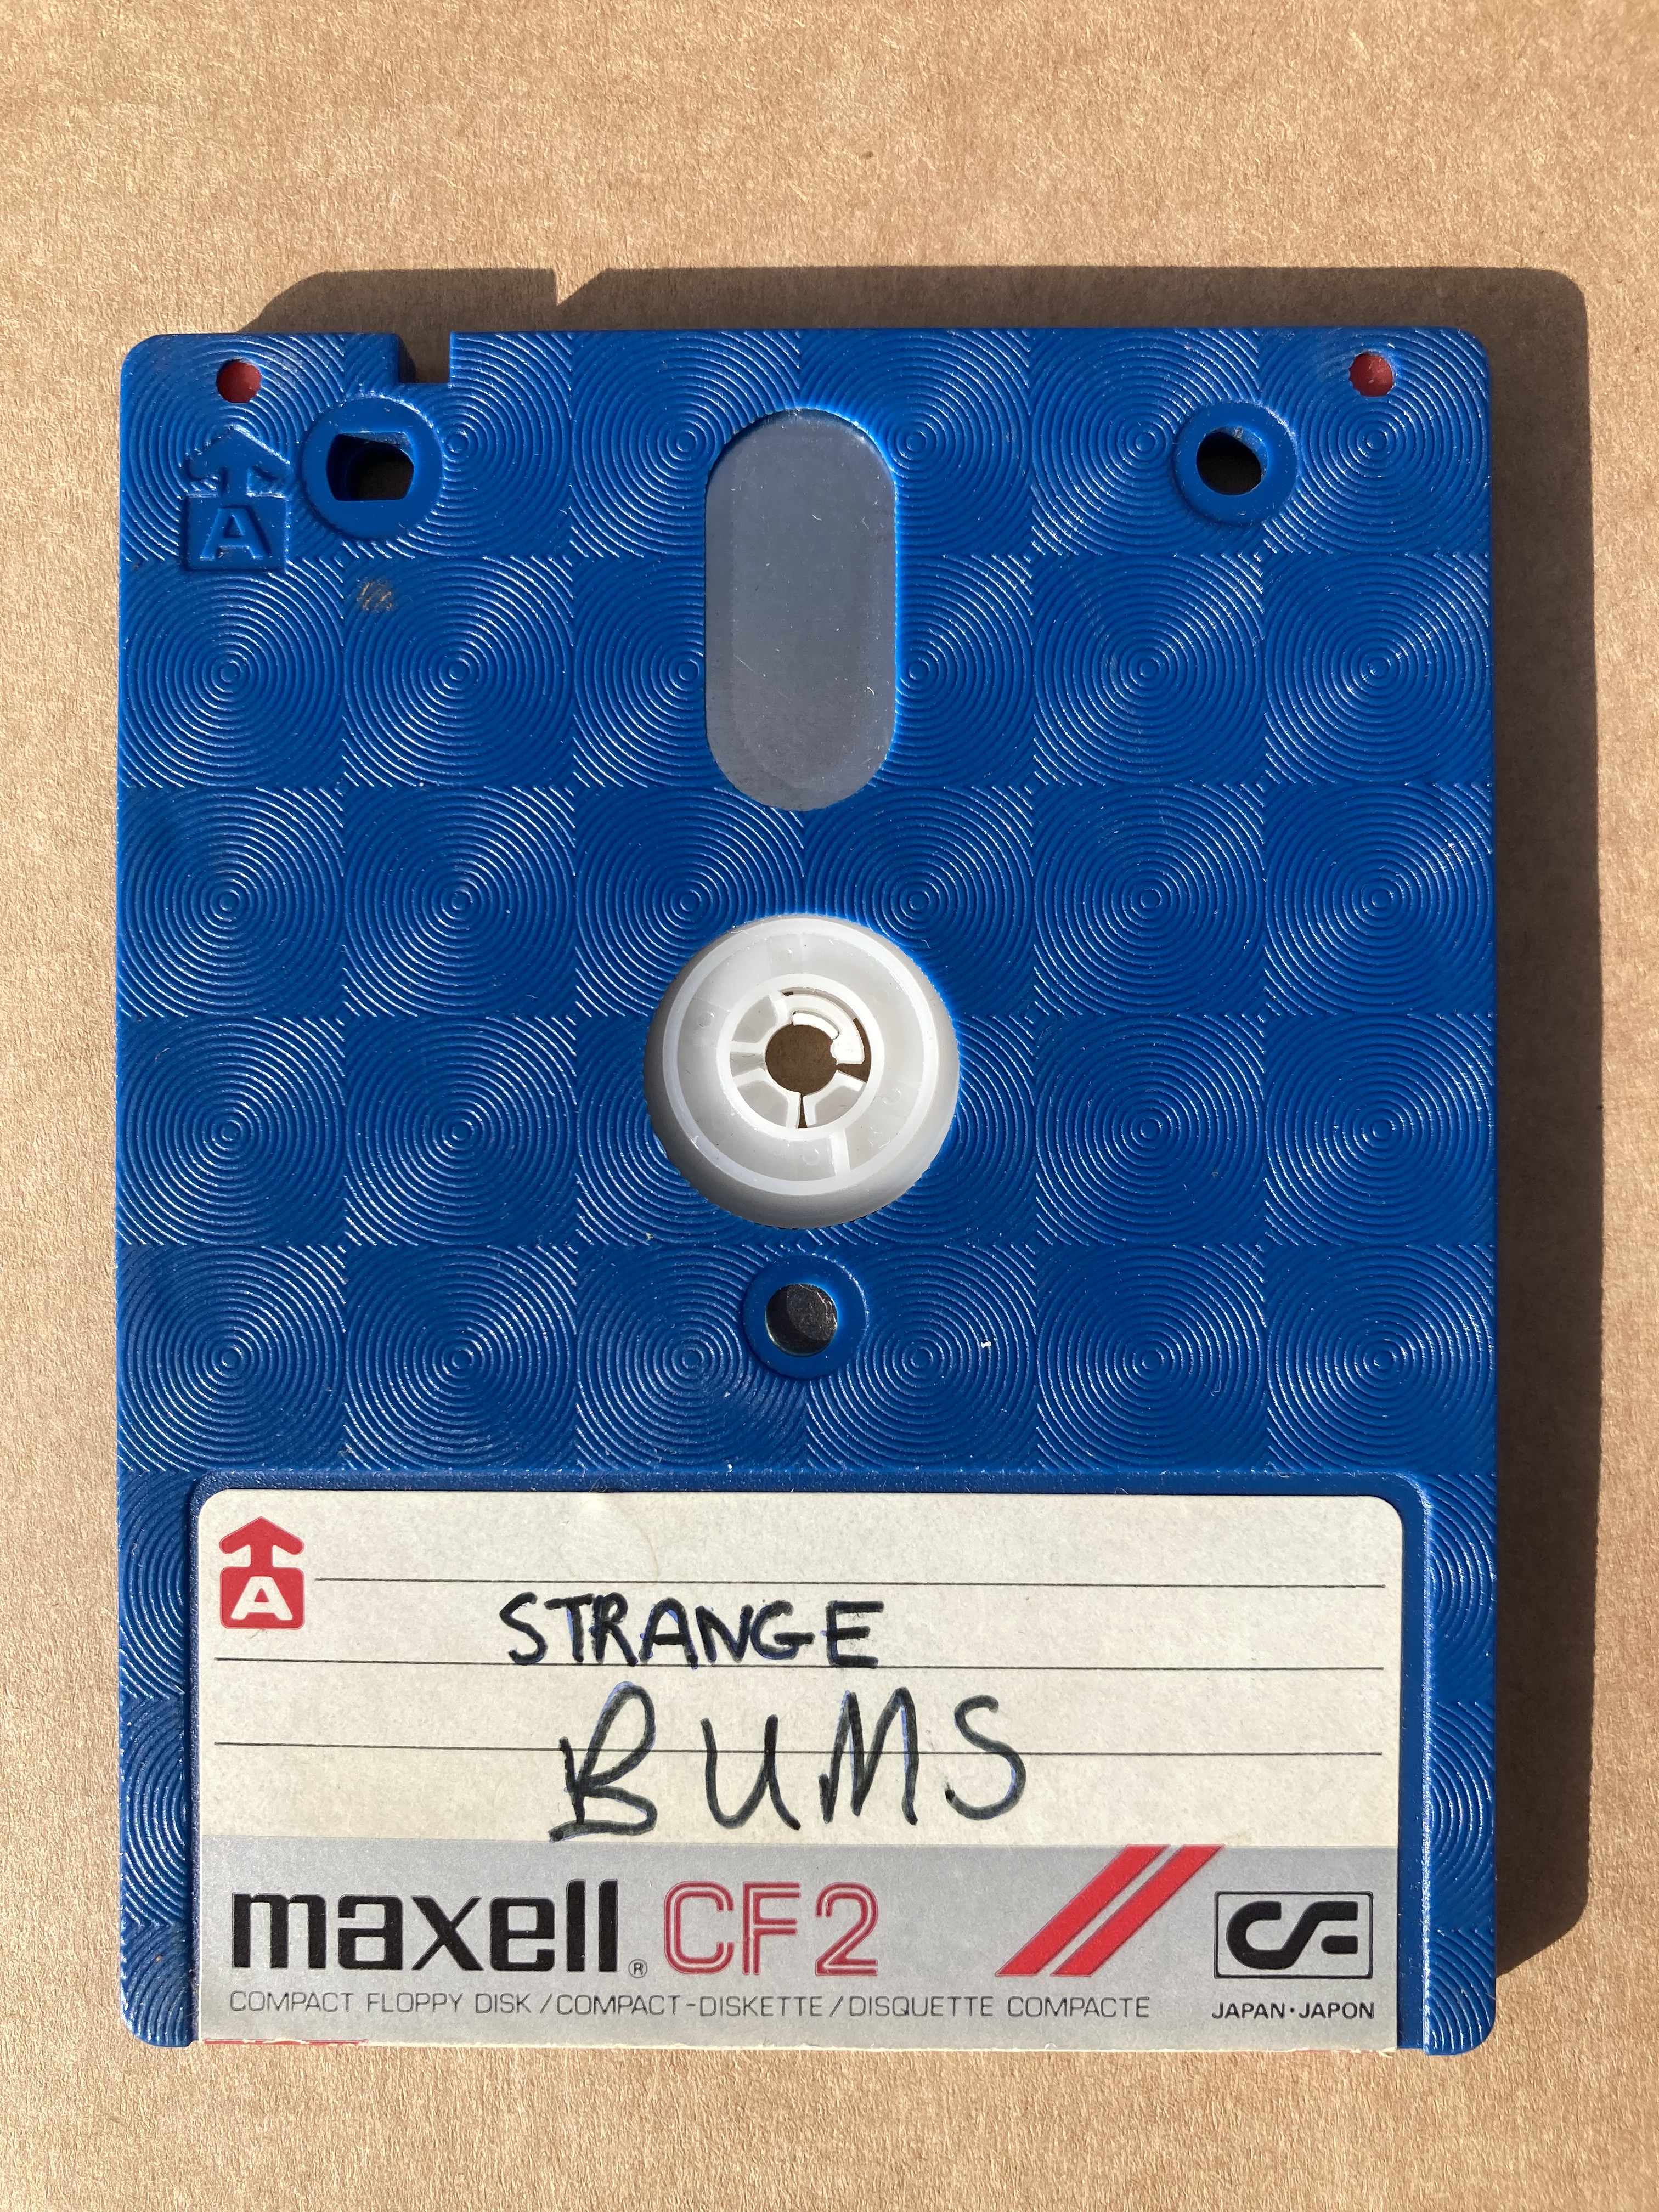 A
A
STRANGE
BUMS
maxell® CF2 CF
COMPACT FLOPPY DISK / COMPACT-DISKETTE / DISQUETTE COMPACTE JAPAN・JAPON